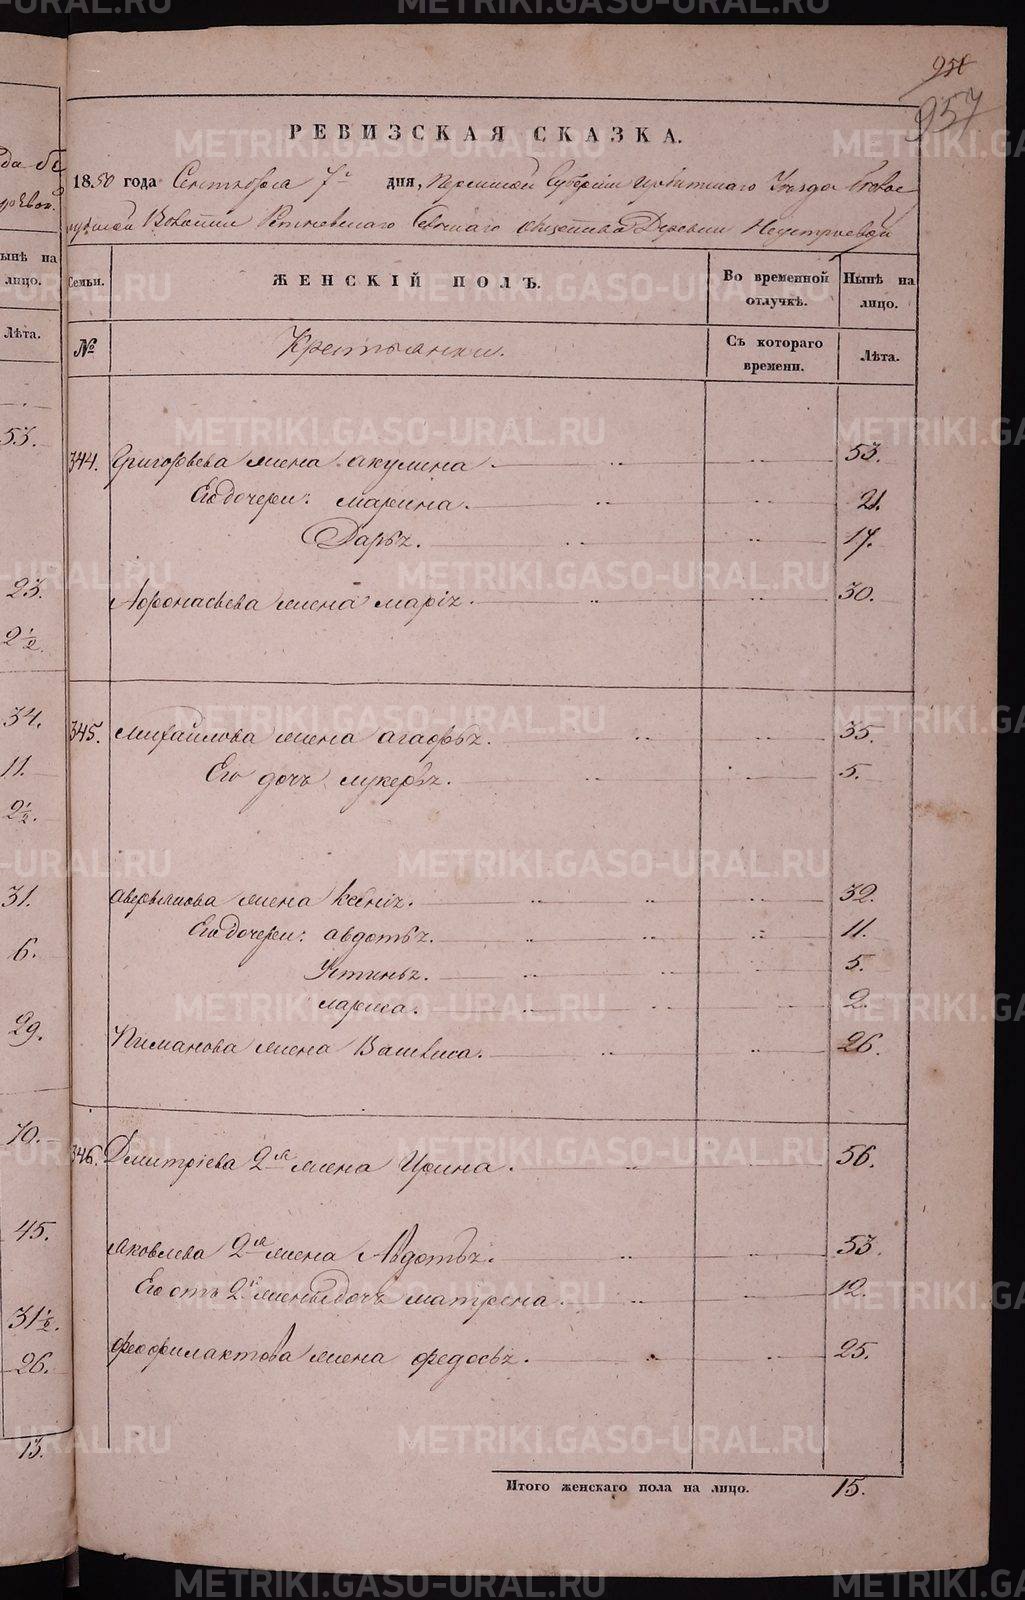 958
957
РЕВИЗСКАЯ СКАЗКА.
1850 года Сентября 7го дня, Пермской Губернии Ирбитскаго Уезда
Волости Сельскаго общества Деревни
Семьи. ЖЕНСКІЙ ПОЛЪ. Во временной отлучкѣ. Нынѣ на лицо.
№ Крестьянки. Съ котораго времени. Лѣта.
344. Григорьева жена акулина. 53.
Его дочери: марина. 21.
Дарья. 17.
Афонасьева жена марія. 30.
345. михайлова жена агафья. 35.
Его дочь лукерья. 5.
аверьянова жена ксенія. 32.
Его дочери: авдотья. 11.
Устинья. 5.
лариса. 2.
Пиманова жена Васивиса. 26.
346. Дмитріева 2я жена Ирина. 56.
Яковлева 2я жена Авдотья. 53.
Его отъ 2й жены дочь матрена. 12.
феофилактова жена федосья. 25.
Итого женскаго пола на лицо. 15.
ынѣ на
лицо.
Лѣта.
53.
23.
2½.
34.
11.
2½.
31.
6.
29.
70.
45.
31½.
26.
13.
METRIKI.GASO-URAL.RU